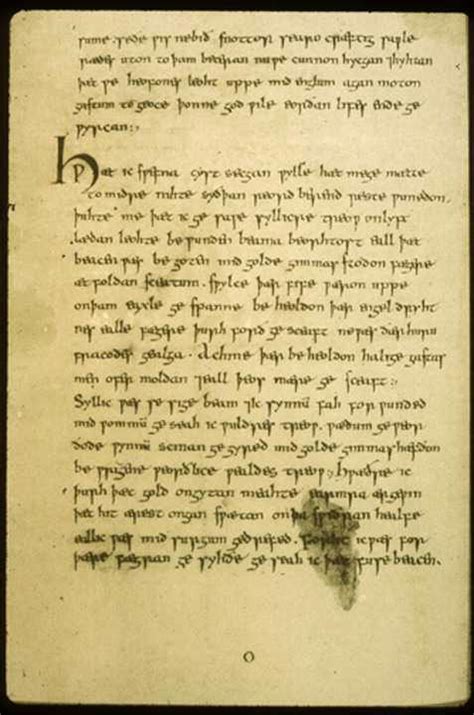 snottor searo cræftig sawle
rædes uton to þam beteran nu we cunnon hycgan ⁊ hyhtan
þæt we heofones leoht uppe mid englum agan moton
gastum to geoce þonne god wile eorðan lifes ende ge
wyrcan :,
Hwæt ic swefna cyst secgan wylle hæt mege mætte
to midre nihte syðþan reord berend reste wunedon.
þuhte me þæt ic ge sawe syllicre treow on lyft
lædan leohte be wunden beama beorhtost eall þæt
beacen wæs be goten mid golde gimmas stodon fægere
æt foldan sceatum. swylce þær fife wæron uppe
on þam eaxle ge spanne be heoldon þær engel dryht
nes ealle fægere þurh forð ge sceaft ne wæs ðær huru
fracodes gealga. Ac hine þær be heoldon halige gastas
men ofer moldan ⁊ eall þeos mære ge sceaft :,
Syllic wæs se sige beam ⁊ ic synnū fah for wunded
mid wommū ge seah ic wuldres treow. wædum ge weor
ðode wynnū scinan ge gyred mid golde gimmas hæfdon
be wrigene weorðlice wealdes treow :, hwæðre ic
þurh þæt gold ongytan meahte earmra ærgewin
þæt hit ærest ongan swætan on þa swiðran healfe
eall ic wæs mid surgum gedrefed. forht ic wæs for
þære fægran ge syhðe ge seah ic þæt fuse beacen.
O